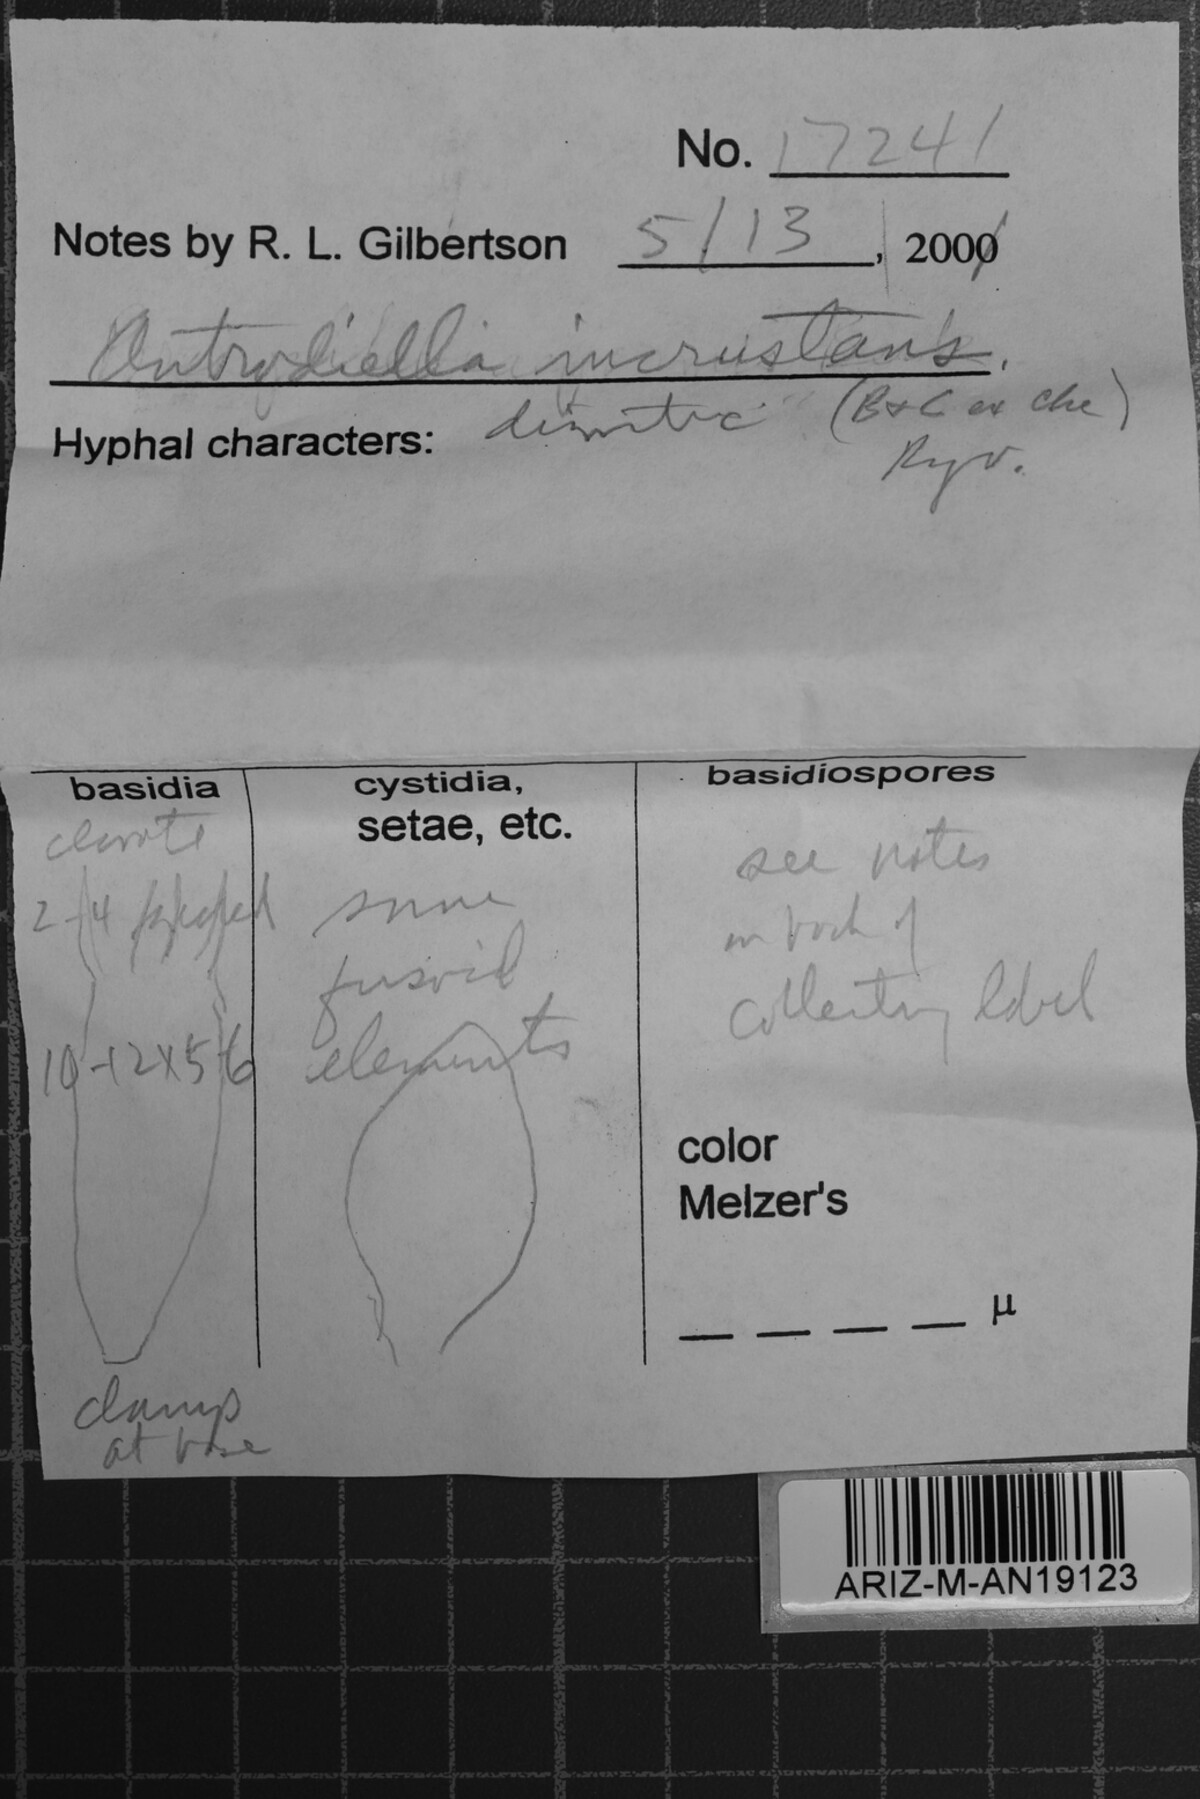 No. 17241
Notes by R. L. Gilbertson 5/13, 2000
Antrodiella incrustans.
Hyphal characters: dimitic (B+C ex Cke)
Ryv.
basidia
clavate
2-4
10-12x5-6
clamp
at base
cystidia,
setae, etc.
some
fusoid
elements
basidiospores
see notes
on back of
collecting label
color
Melzer's
µ
ARIZ-M-AN19123